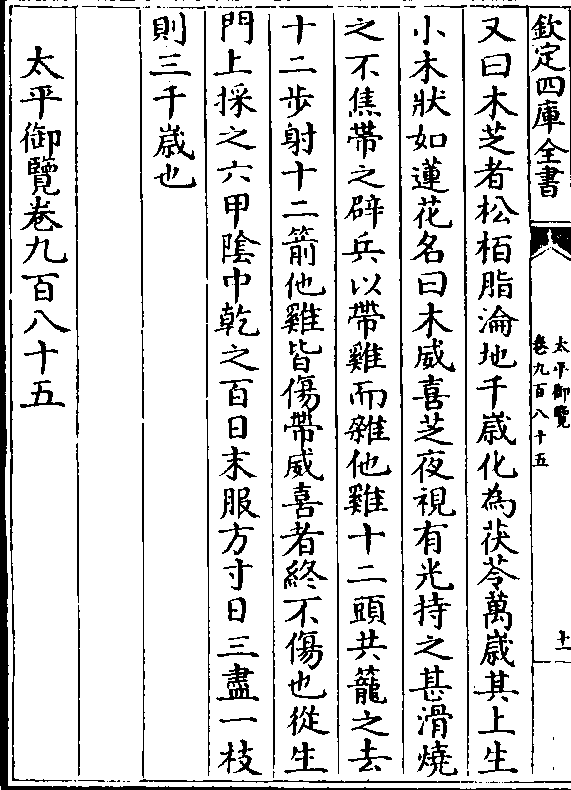 欽定四庫全書
太平御覽
卷九百八十五
十一
又曰木芝者松栢脂淪地千歲化為茯苓萬歲其上生
小木狀如蓮花名曰木威喜芝夜視有光持之甚滑燒
之不焦帶之辟兵以帶雞而雜他雞十二頭共籠之去
十二步射十二箭他雞皆傷帶威喜者終不傷也從生
門上採之六甲陰中乾之百日末服方寸日三盡一枝
則三千歲也
太平御覽卷九百八十五